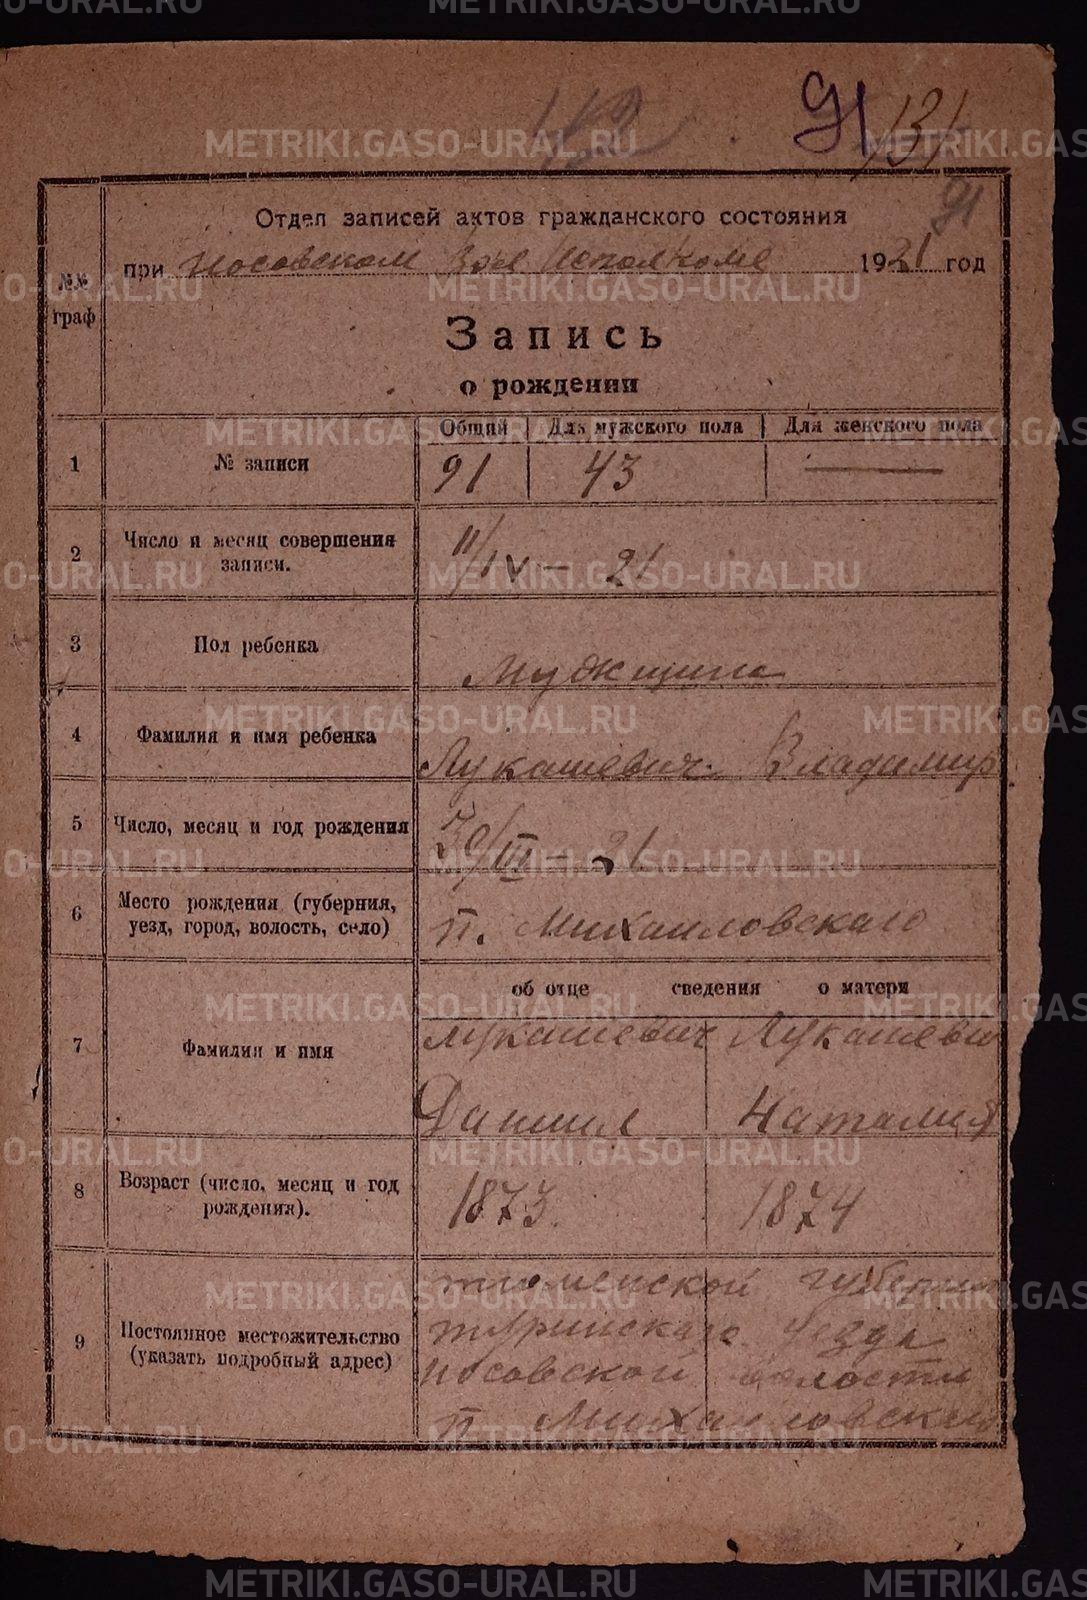 METRIKI.GASO-URAL.RU
91
91
Отдел записей актов гражданского состояния
при Носовском Вол Исполкоме 1921 год
№№ граф
Запись
о рождении
Общий Для мужского пола Для женского пола
1 № записи 91 43 —
2 Число и месяц совершения записи. 11/IV – 21
3 Пол ребенка Муджщина
4 Фамилия и имя ребенка Лукашевич Владимир
5 Число, месяц и год рождения 30/III – 21
6 Место рождения (губерния, уезд, город, волость, село) п. Михаиловскаго
об отце сведения о матери
7 Фамилия и имя Лукашевич Лукашевич
Даниил Наталия
8 Возраст (число, месяц и год рождения). 1873. 1874
9 Постоянное местожительство (указать подробный адрес) тюменской губернии
туринскаго уезда
носовской волости
п Михаиловскаго